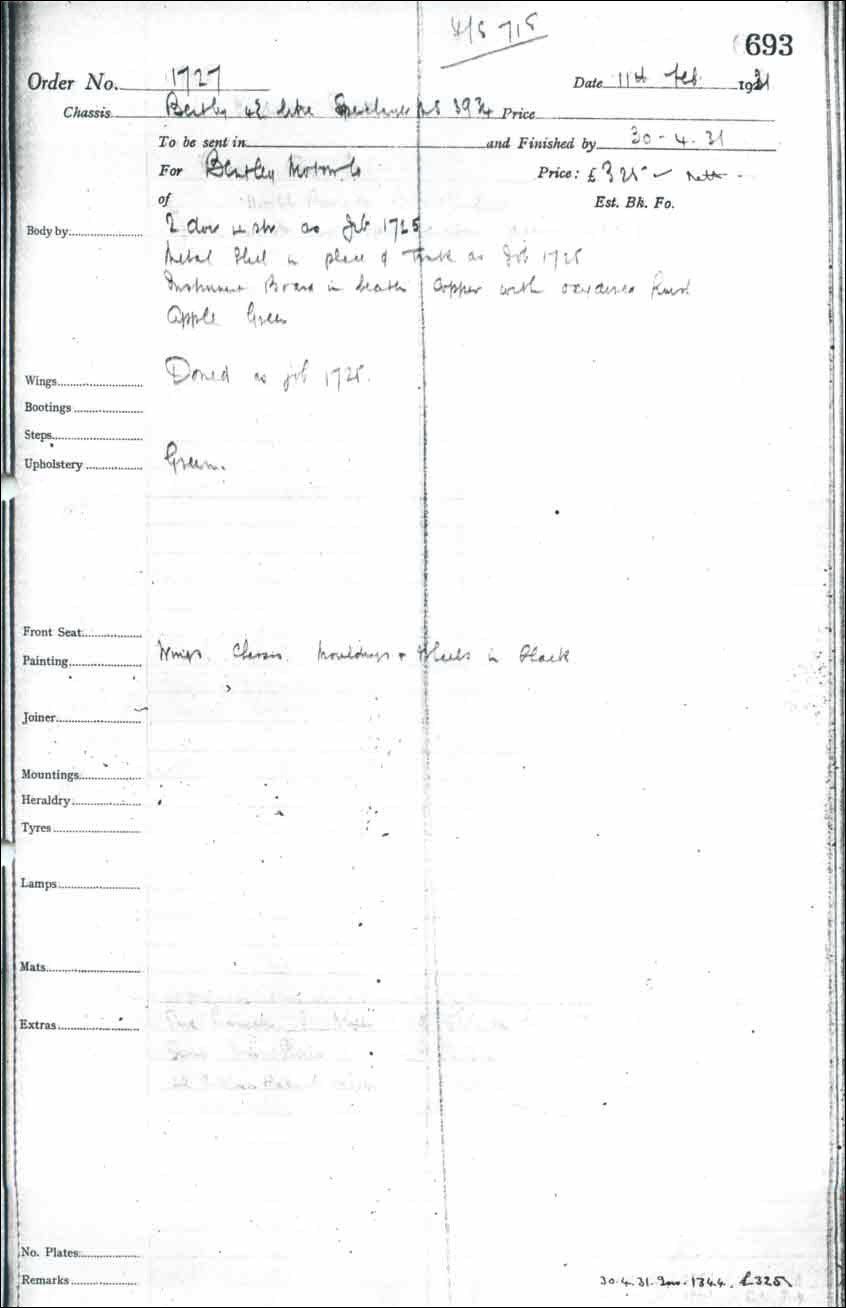 693
Order No. 1727 Date 11th Feb. 1931
Chassis Bentley Price
To be sent in and Finished by 30-4.31
For Bentley Motors Price: £325 nett
of Est. Bk. Fo.
Body by 2 door as Job 1725
Metal in place of as Job 1725
Instrument Board in Copper with
Apple Green
Wings Domed as job 1725.
Bootings
Steps
Upholstery Green.
Front Seat
Painting Wings. Chassis. Mouldings + Wheels in Black
Joiner
Mountings
Heraldry
Tyres
Lamps
Mats
Extras
No. Plates
Remarks 30.4.31. 1344. £325